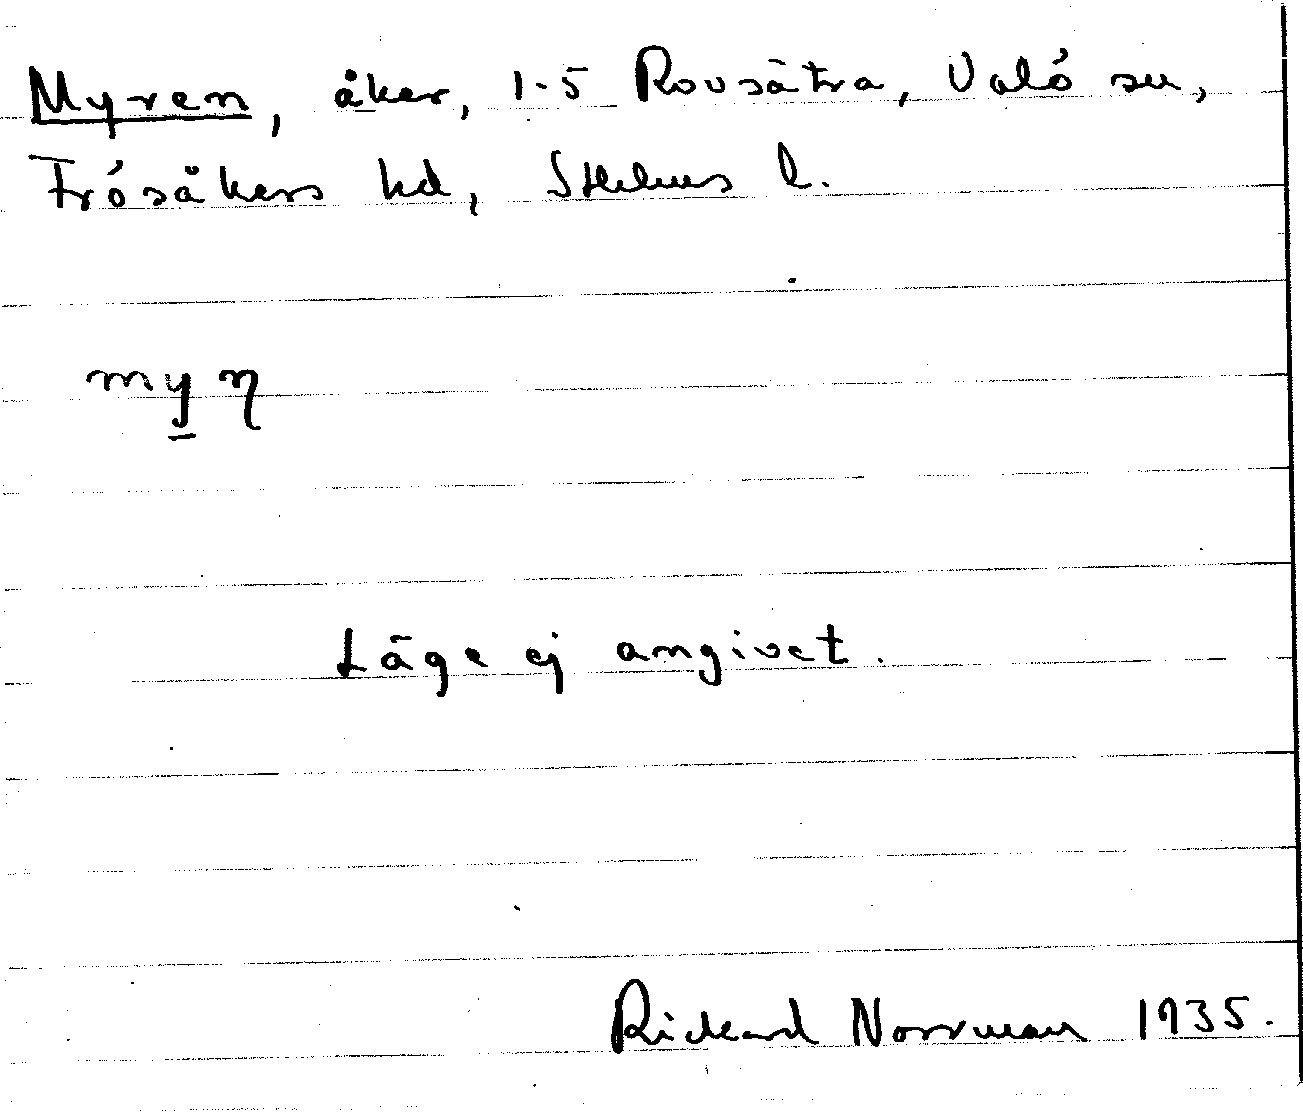 Myren, åker, 1-5 Rovsätra, Valö sn,
Frösåkers hd, Sthlms l.
my̲ η
Läge ej angivet.
Rickard Norrman 1935.